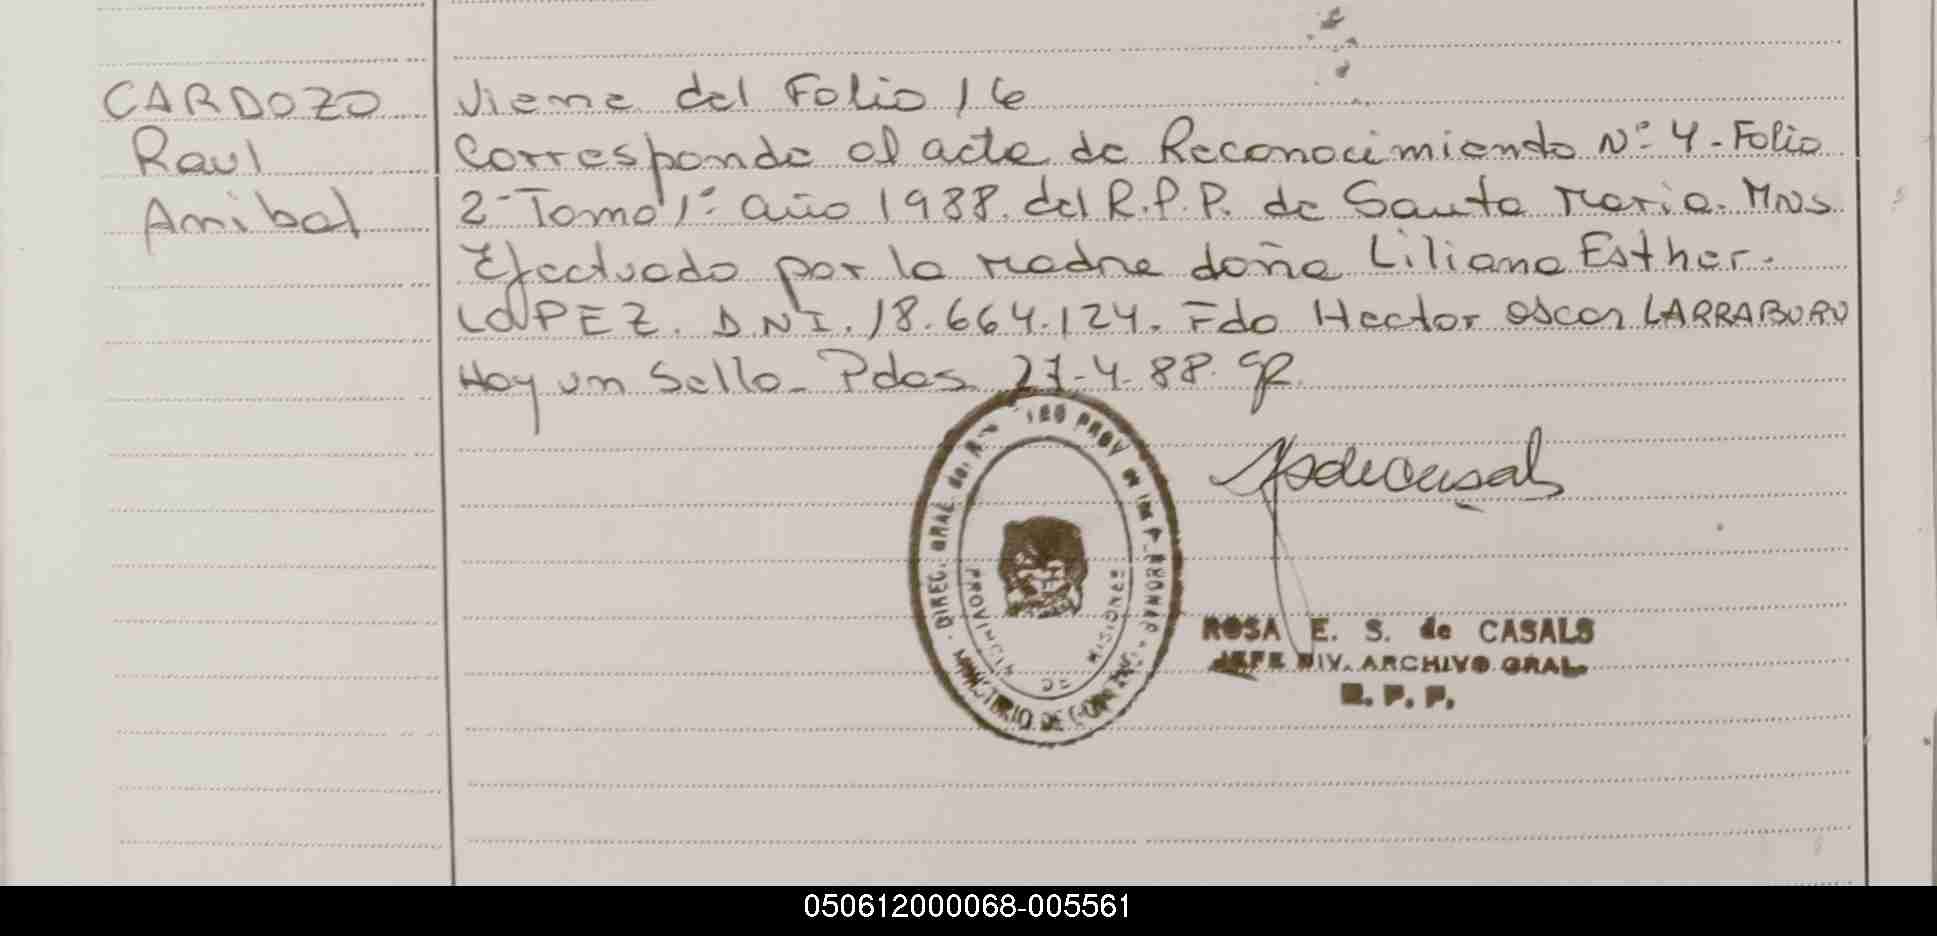 CARDOZO
Raul
Anibal
Viene del Folio 16
Corresponde al acta de Reconocimiento Nº 4 - Folio
2 - Tomo 1º año 1988. del R.P.P. de Santa Maria. MNS
Efectuado por la madre doña Liliana Esther.
LOPEZ. D.N.I. 18.664.124. Fdo Hector Oscar LARRABURU
Hay un Sello - Pdas 27-4-88.
DIREC. GRAL del PROV de las P
MINISTERIO DE GOB
PROVINCIA DE MISIONES
ROSA E. S. de CASALS
JEFE DIV. ARCHIVO GRAL.
R. P. P.
050612000068-005561